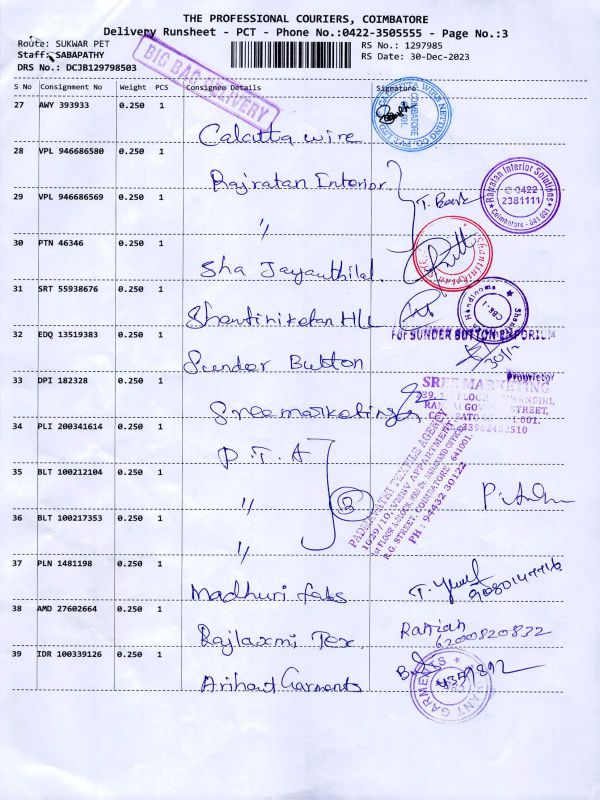 THE PROFESSIONAL COURIERS, COIMBATORE
Delivery Runsheet - PCT - Phone No.:0422-3505555 - Page No.:3
Route: SUKWAR PET
RS No.: 1297985
Staff: SABAPATHY
RS Date: 30-Dec-2023
DRS No.: DCJB129798503
BIG BAG DELIVERY
S No Consignment No Weight PCS Consignee Details Signature
27 AWY 393933 0.250 1
Calcutta wire
28 VPL 946686580 0.250 1
Rajratan Interior
T. Bank
Rajratan Interior Solutions
0422
2381111
Coimbatore - 641 001
29 VPL 946686569 0.250 1
〃
30 PTN 46346 0.250 1
Sha Jayanthilal
31 SRT 55938676 0.250 1
Shantiniketan HL
32 EDQ 13519383 0.250 1
For SUNDER BUTTON EMPORIUM
Sunder Button
30/12
Proprietor
33 DPI 182328 0.250 1
SREE MARKETING
Sree marketing
34 PLI 200341614 0.250 1
P.T.A
PADMAVATHI TEXTILE AGENCY
R.G. STREET, COIMBATORE - 641001.
PH : 94432 30122
35 BLT 100212104 0.250 1
〃
3
36 BLT 100217353 0.250 1
〃
37 PLN 1481198 0.250 1
Madhuri fabs
9080147716
38 AMD 27602664 0.250 1
Rajlaxmi Tex
6200820832
39 IDR 100339126 0.250 1
Arihant Garments